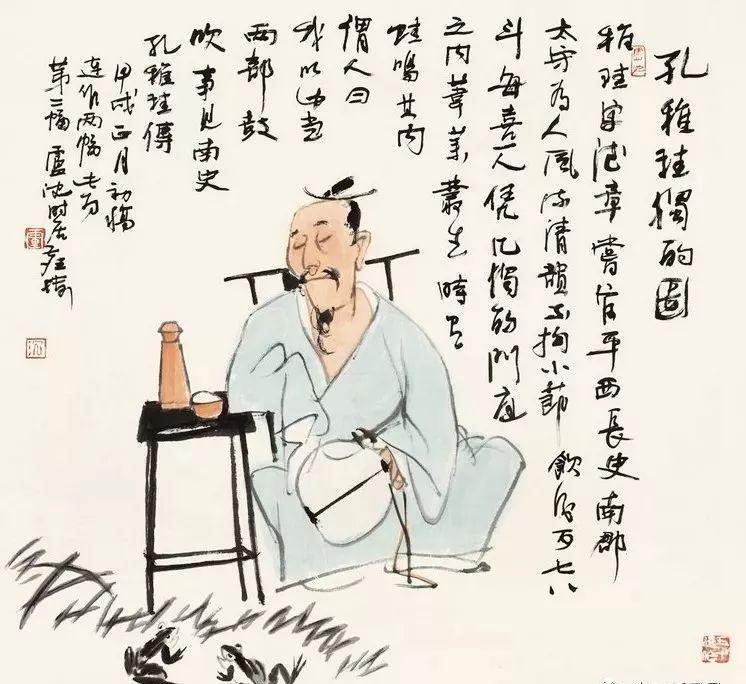 孔稚珪獨酌圖
稚珪字德章嘗官平西長史南郡
太守為人風流清韻不拘小節飲酒可七八
斗每喜一人凭几獨酌門庭
之內叢生時有
蛙鳴其內
謂人曰
我以此當
兩部鼓
吹事見南史
孔稚珪傳
甲戌正月初
連作兩幅此為
第二幅盧沈時居